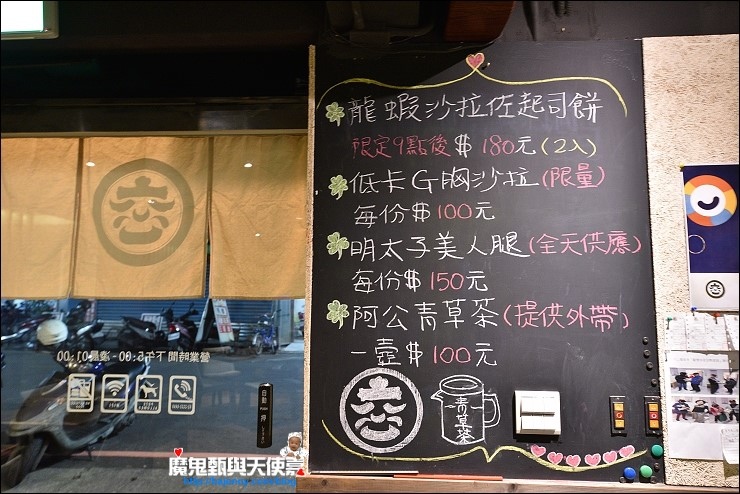 龍蝦沙拉佐起司餅
限定9點後$180元(2入)
低卡G胸沙拉(限量)
每份$100元
明太子美人腿(全天供應)
每份$150元
阿公青草茶(提供外帶)
一壺$100元
青草茶
營業時間 下午5:00 - 凌晨01:00
自動
押
魔鬼甄與天使嘉